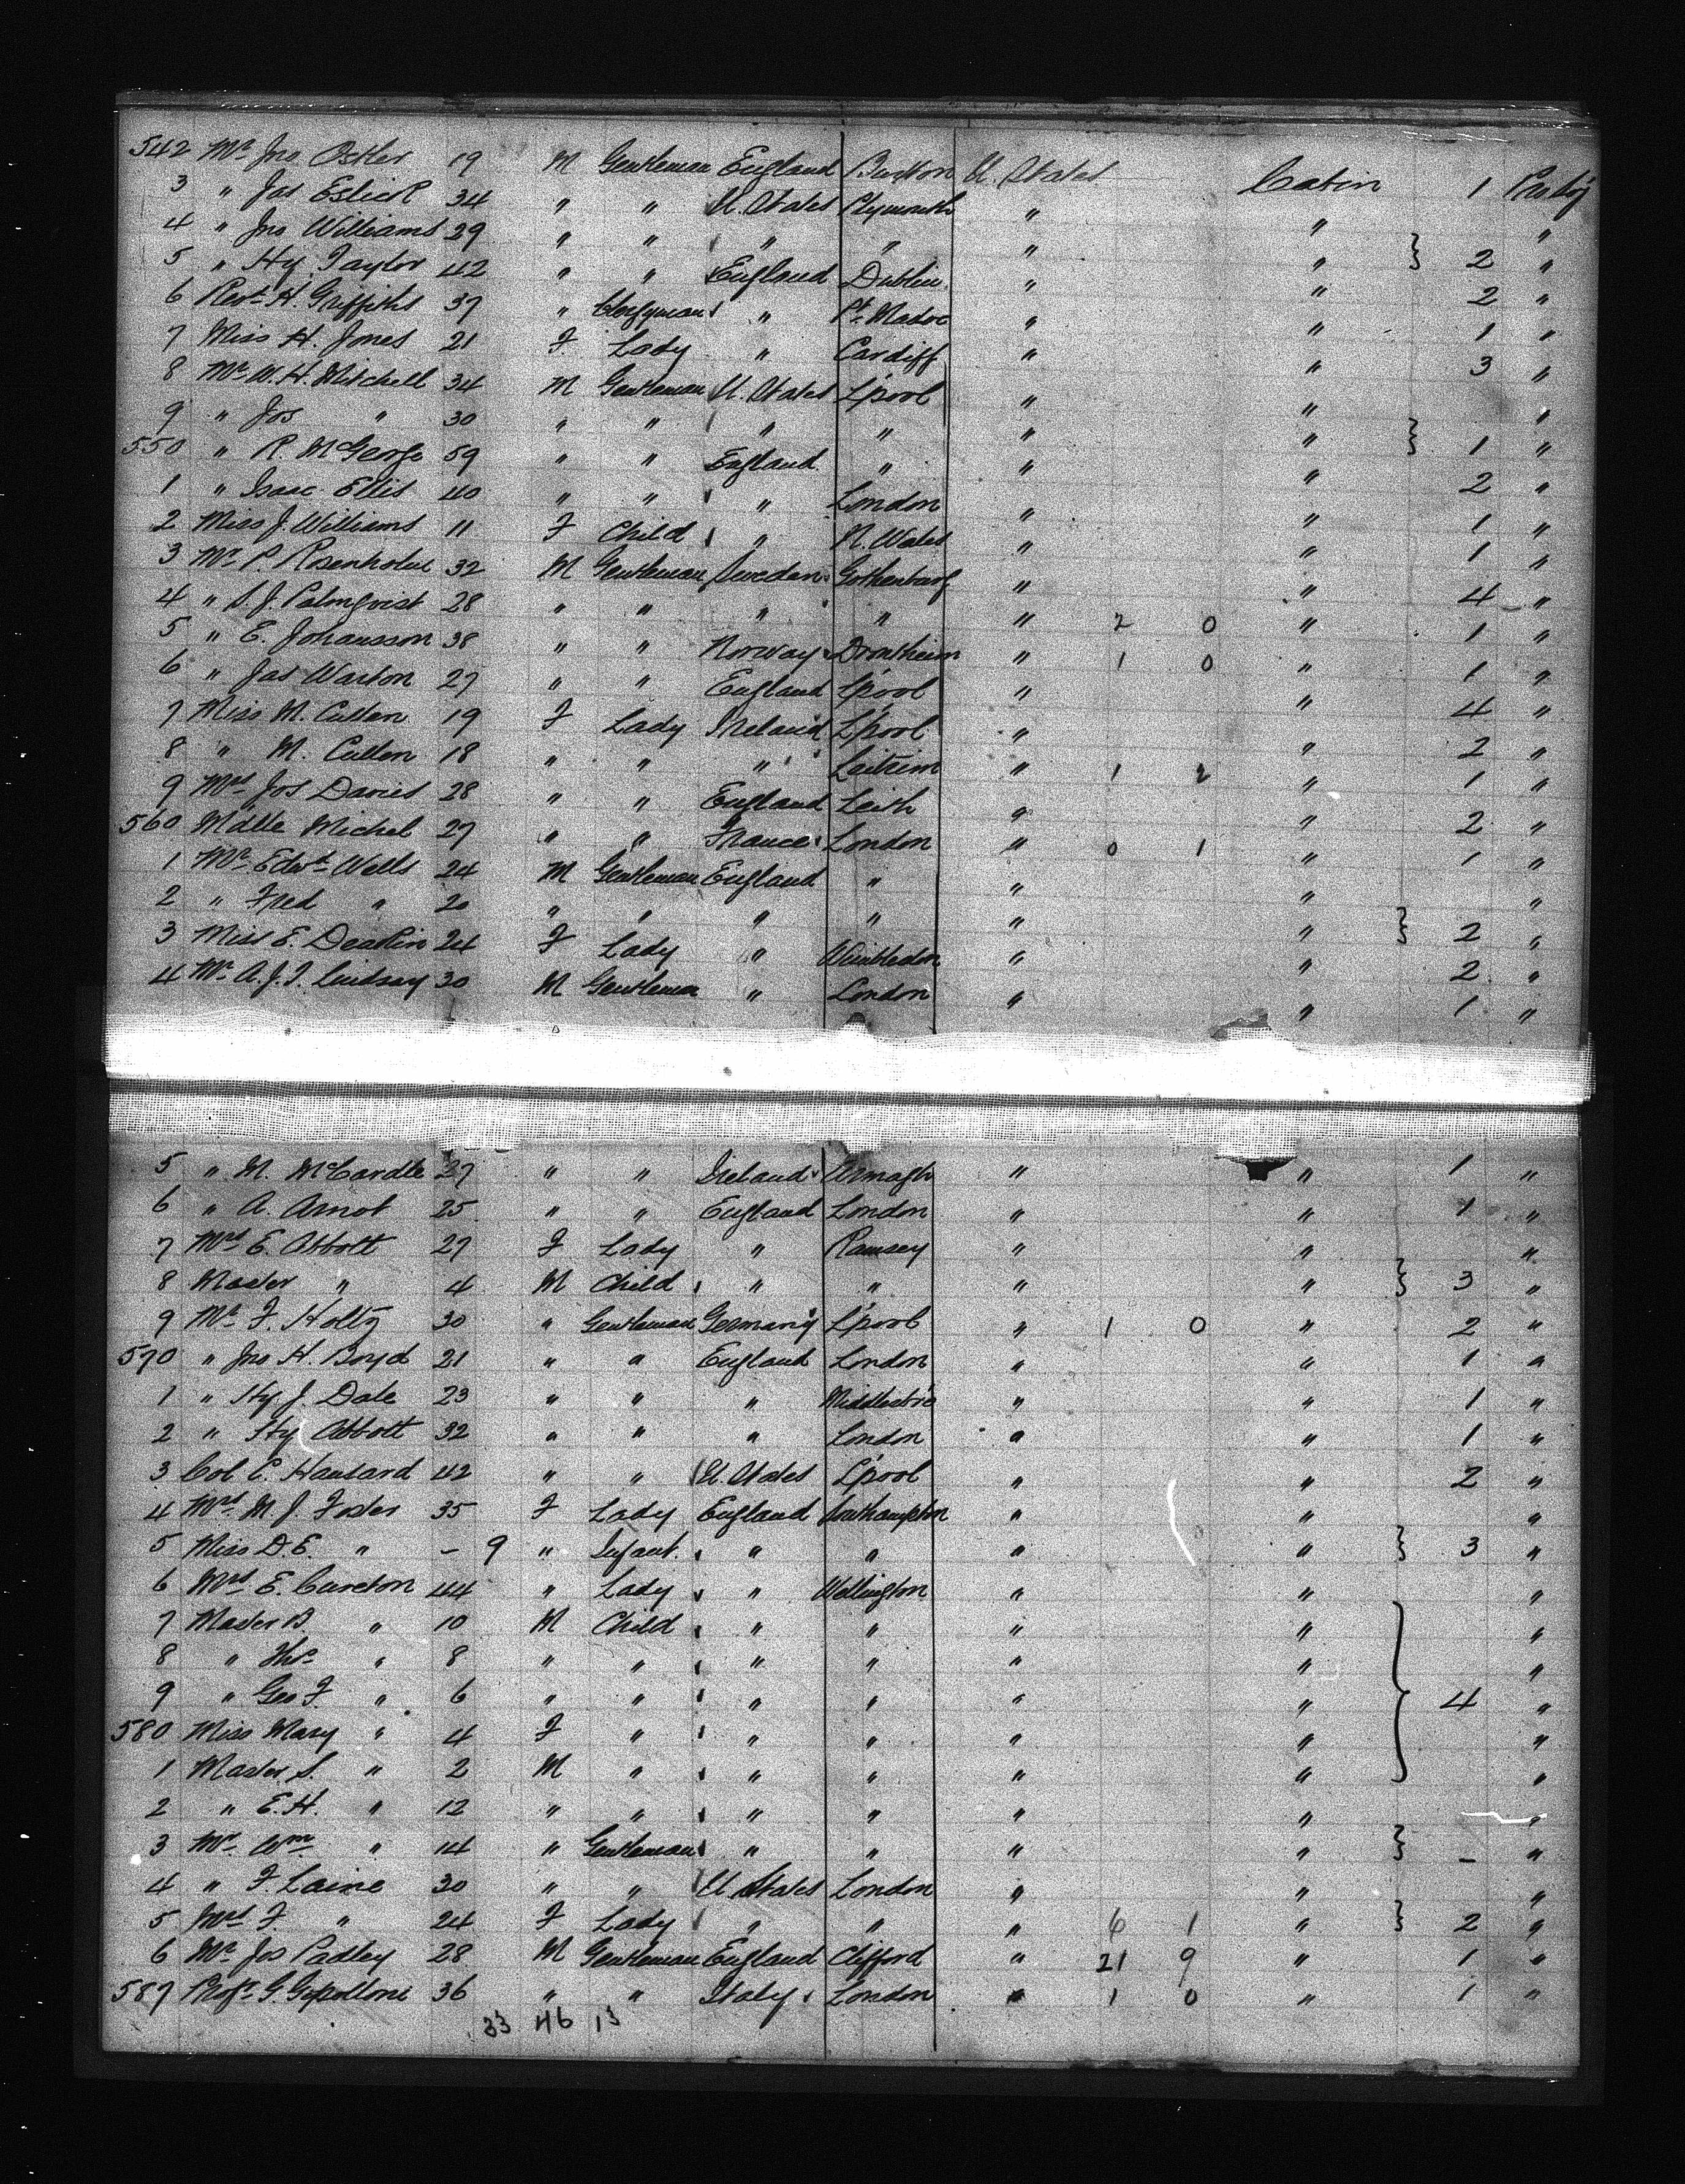 542 Mr Jno Ostler 19 M Gentleman England Buxton U. States Cabin 1 Pro
3 " Jas Eslick 34 " " U. States Plymouth " " "
4 " Jno Williams 29 " " " " " " } 2 "
5 " Hy. Taylor 42 " " England Dublin " " 2 "
6 Revd H. Griffiths 37 " Clergyman " Pt. Madoc " " 1 "
7 Miss H. Jones 21 F Lady " Cardiff " " 3 "
8 Mr W. H. Mitchell 34 M Gentleman U. States L'pool " " "
9 " Jos " 30 " " " " " " } 1 "
550 " R. McGeorge 59 " " England " " " 2 "
1 " Isaac Ellis 40 " " " London " " 1 "
2 Miss J. Williams 11 F Child " N. Wales " " 1 "
3 Mr P. Rosenholm 32 M Gentleman Sweden Gothenburg " " 4 "
4 " S. J. Palmqvist 28 " " " " " 2 0 " 1 "
5 " E. Johansson 38 " " Norway Drontheim " 1 0 " 1 "
6 " Jas Warton 27 " " England L'pool " " 4 "
7 Miss M. Cullen 19 F Lady Ireland L'pool " " 2 "
8 " M. Cullen 18 " " " Leitrim " 1 2 " 1 "
9 Mrs Jos Davies 28 " " England Leith " " 2 "
560 Mdlle Michel 27 " " France London " 0 1 " 1 "
1 Mr Edwd Wells 24 M Gentleman England " " " "
2 " Fred " 20 " " " " " " } 2 "
3 Miss E. Deakin 24 F Lady " Wimbledon " " 2 "
4 Mr A. J. F. Lindsay 30 M Gentleman " London " " 1 "
5 " M. McCardle 27 " " Ireland Armagh " " 1 "
6 " A. Arnot 25 " " England London " " 1 "
7 Mrs E. Abbott 27 F Lady " Ramsey " " "
8 Master " 4 M Child " " " " } 3 "
9 Mr F. Holtz 30 " Gentleman Germany L'pool " 1 0 " 2 "
570 " Jno H. Boyd 21 " " England London " " 1 "
1 " Hy. J. Dale 23 " " " Middlesbro " " 1 "
2 " Hy Abbott 32 " " " London " " 1 "
3 Col C. Hansard 42 " " U. States L'pool " " 2 "
4 Mrs M. J. Foster 35 F Lady England Southampton " " "
5 Miss D. E. " - 9 " Infant " " " " } 3 "
6 Mrs E. Cureton 44 " Lady " Wellington " " "
7 Master B. " 10 M Child " " " " "
8 " Thos " 8 " " " " " " "
9 " Geo F. " 6 " " " " " " } 4 "
580 Miss Mary " 4 F " " " " " "
1 Master S. " 2 M " " " " " "
2 " E. H. " 12 " " " " " " "
3 Mr Wm " 14 " Gentleman " " " " } - "
4 " F. Laine 30 " " U. States London " " "
5 Mrs F. " 24 F Lady " " " 6 1 " } 2 "
6 Mr Jos Padley 28 M Gentleman England Clifford " 21 9 " 1 "
587 Profr G. 36 " " Italy London " 1 0 " 1 "
33 46 13